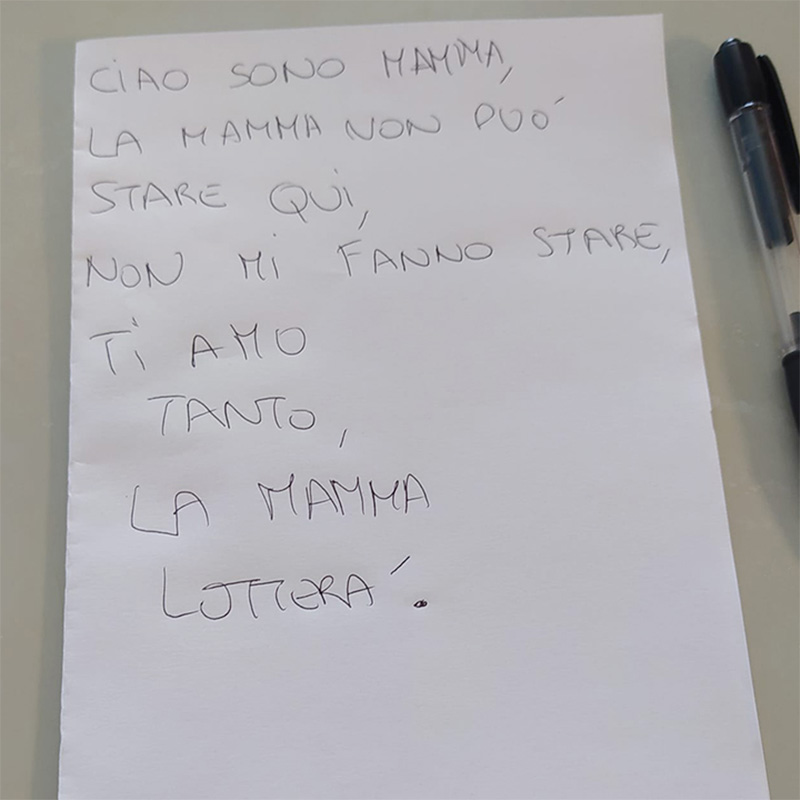 CIAO SONO MAMMA,
LA MAMMA NON PUO´
STARE QUI,
NON MI FANNO STARE,
TI AMO
TANTO,
LA MAMMA
LOTTERA´.